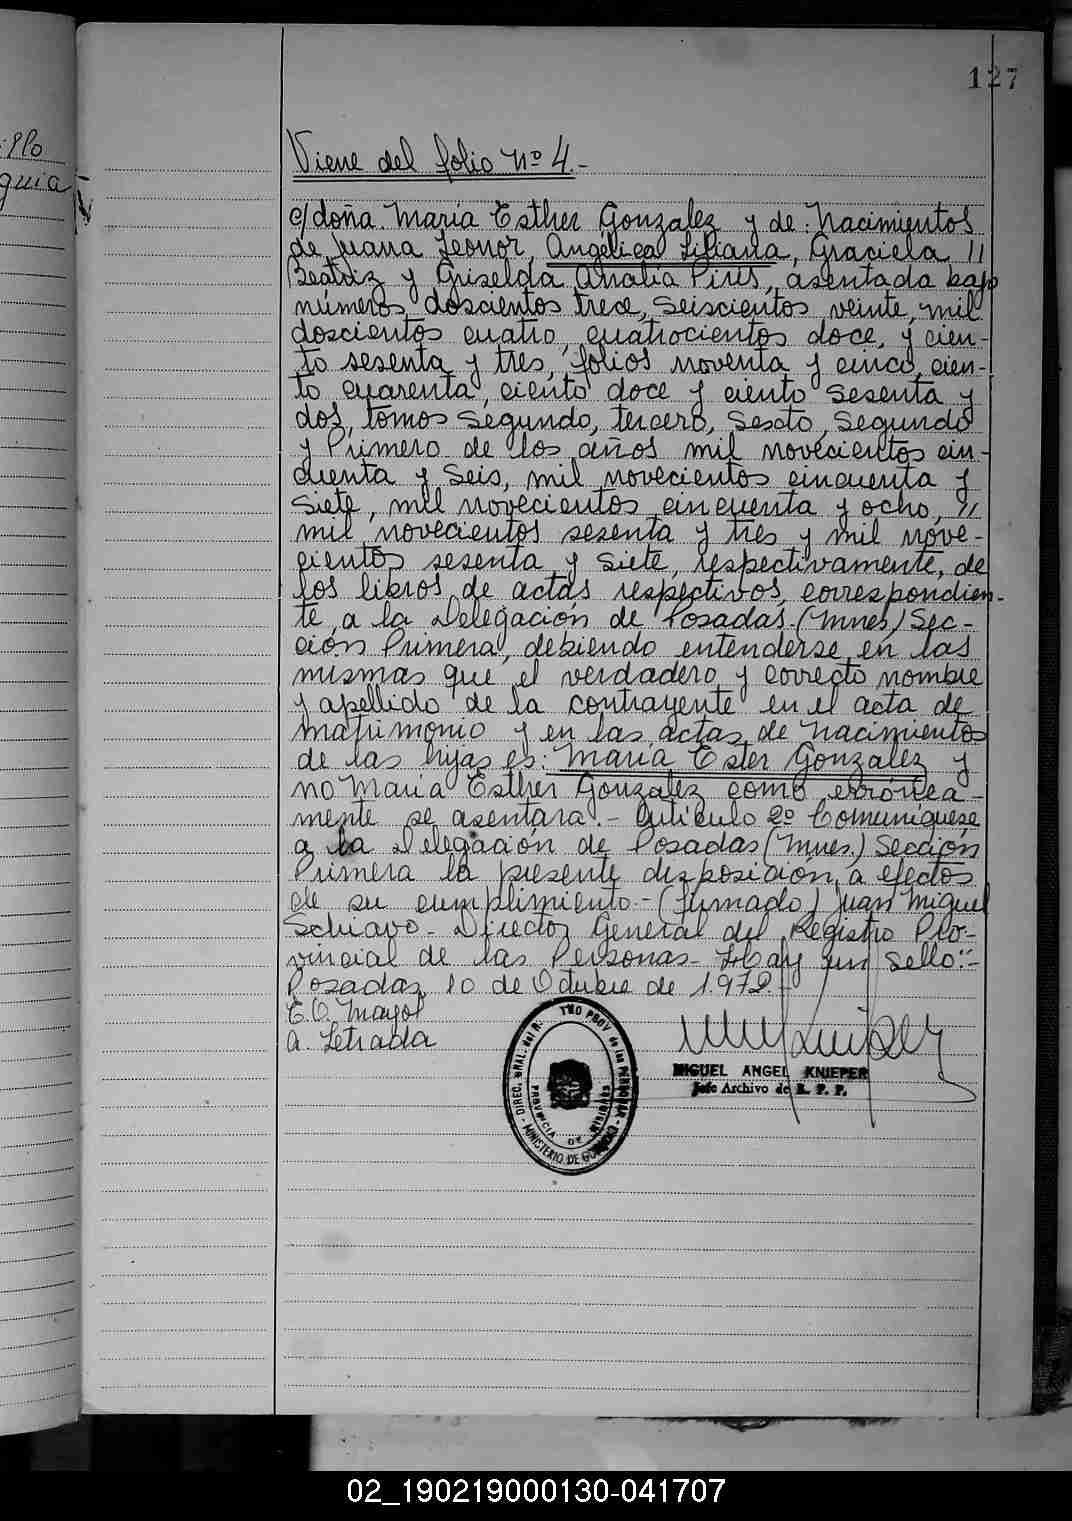 127
Viene del folio Nº 4.-
c/doña María Esther Gonzalez y de: Nacimientos
de Juana Leonor, Angélica Liliana, Graciela //
Beatriz y Griselda Analia Pires, asentada bajo
números doscientos trece, seiscientos veinte, mil
doscientos cuatro, cuatrocientos doce, y cien-
to sesenta y tres, folios noventa y cinco, cien-
to cuarenta, ciento doce y ciento sesenta y
dos, tomos segundo, tercero, sexto, segundo
y Primero de los años mil novecientos cin-
cuenta y seis, mil novecientos cincuenta y
siete, mil novecientos cincuenta y ocho, //
mil novecientos sesenta y tres y mil nove-
cientos sesenta y siete, respectivamente, de
los libros de actas respectivos, correspondien-
te, a la Delegación de Posadas.(Mnes) Sec-
ción Primera, debiendo entenderse en las
mismas que el verdadero y correcto nombre
y apellido de la contrayente en el acta de
matrimonio y en las actas de Nacimientos
de las hijas es: María Ester Gonzalez y
no María Esther Gonzalez como errónea-
mente se asentara.- Artículo 2º Comuníquese
a la Delegación de Posadas (Mnes.) Sección
Primera la presente disposición a efectos
de su cumplimiento.- (Firmado) Juan Miguel
Schiavo - Director General del Registro Pro-
vincial de las Personas - Hay un sello:-
Posadas, 10 de Octubre de 1.972 -
E.O. Mayol
a. Letrada
MIGUEL ANGEL KNIEPER
Jefe Archivo de R. P. P.
DIREC. GRAL. del R. TRO PROV de las PERSONAS
MINISTERIO DE GOBIERNO
PROVINCIA DE MISIONES
02_190219000130-041707